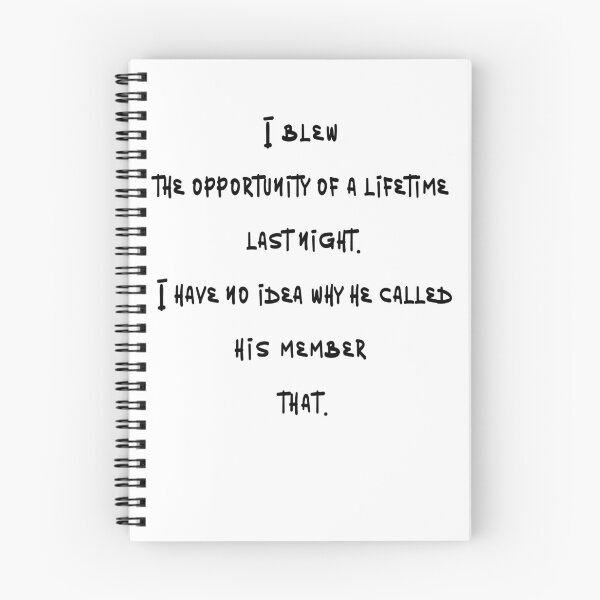 I BLEW
THE OPPORTUNITY OF A LIFETIME
LAST NIGHT.
I HAVE NO IDEA WHY HE CALLED
HIS MEMBER
THAT.